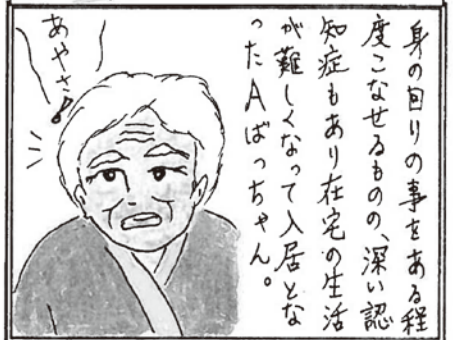 身の回りの事をある程
度こなせるものの、深い認
知症もあり在宅の生活
が難しくなって入居とな
ったAばっちゃん。
あやさ!